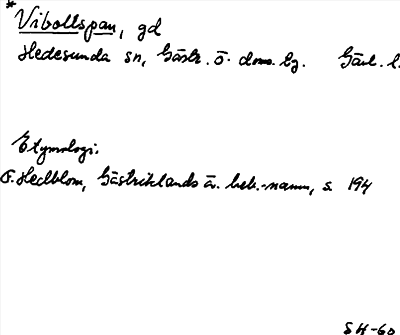 *
Vibollspan, gd
Hedesunda sn, Gästr. ö. doms. bg. Gävl. l.
Etymologi.
F. Hedblom, Gästriklands ä. beb.-namn, s. 194
SH-60